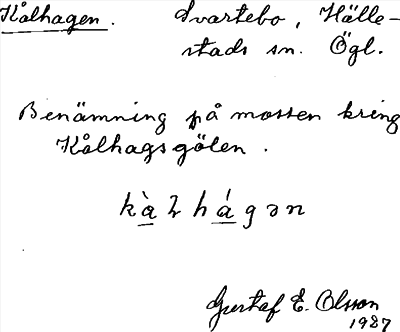 Kålhagen. Svartebo, Hälle-
stads sn. Ögl.
Benämning på mossen kring
Kålhagsgölen.
kàlhágən
Gustaf E. Olsson
1927